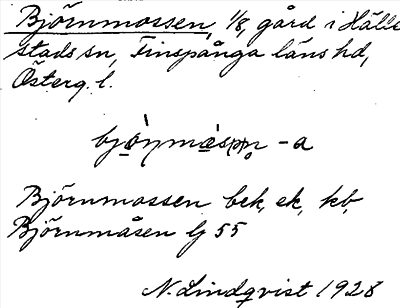 Björnmossen, 1/8, gård i Häll-
stads sn, Finspånga läns hd,
Österg. l.
-a
Björnmossen bek, ek, kb,
Björnmåsen lj 55
N. Lindqvist 1928